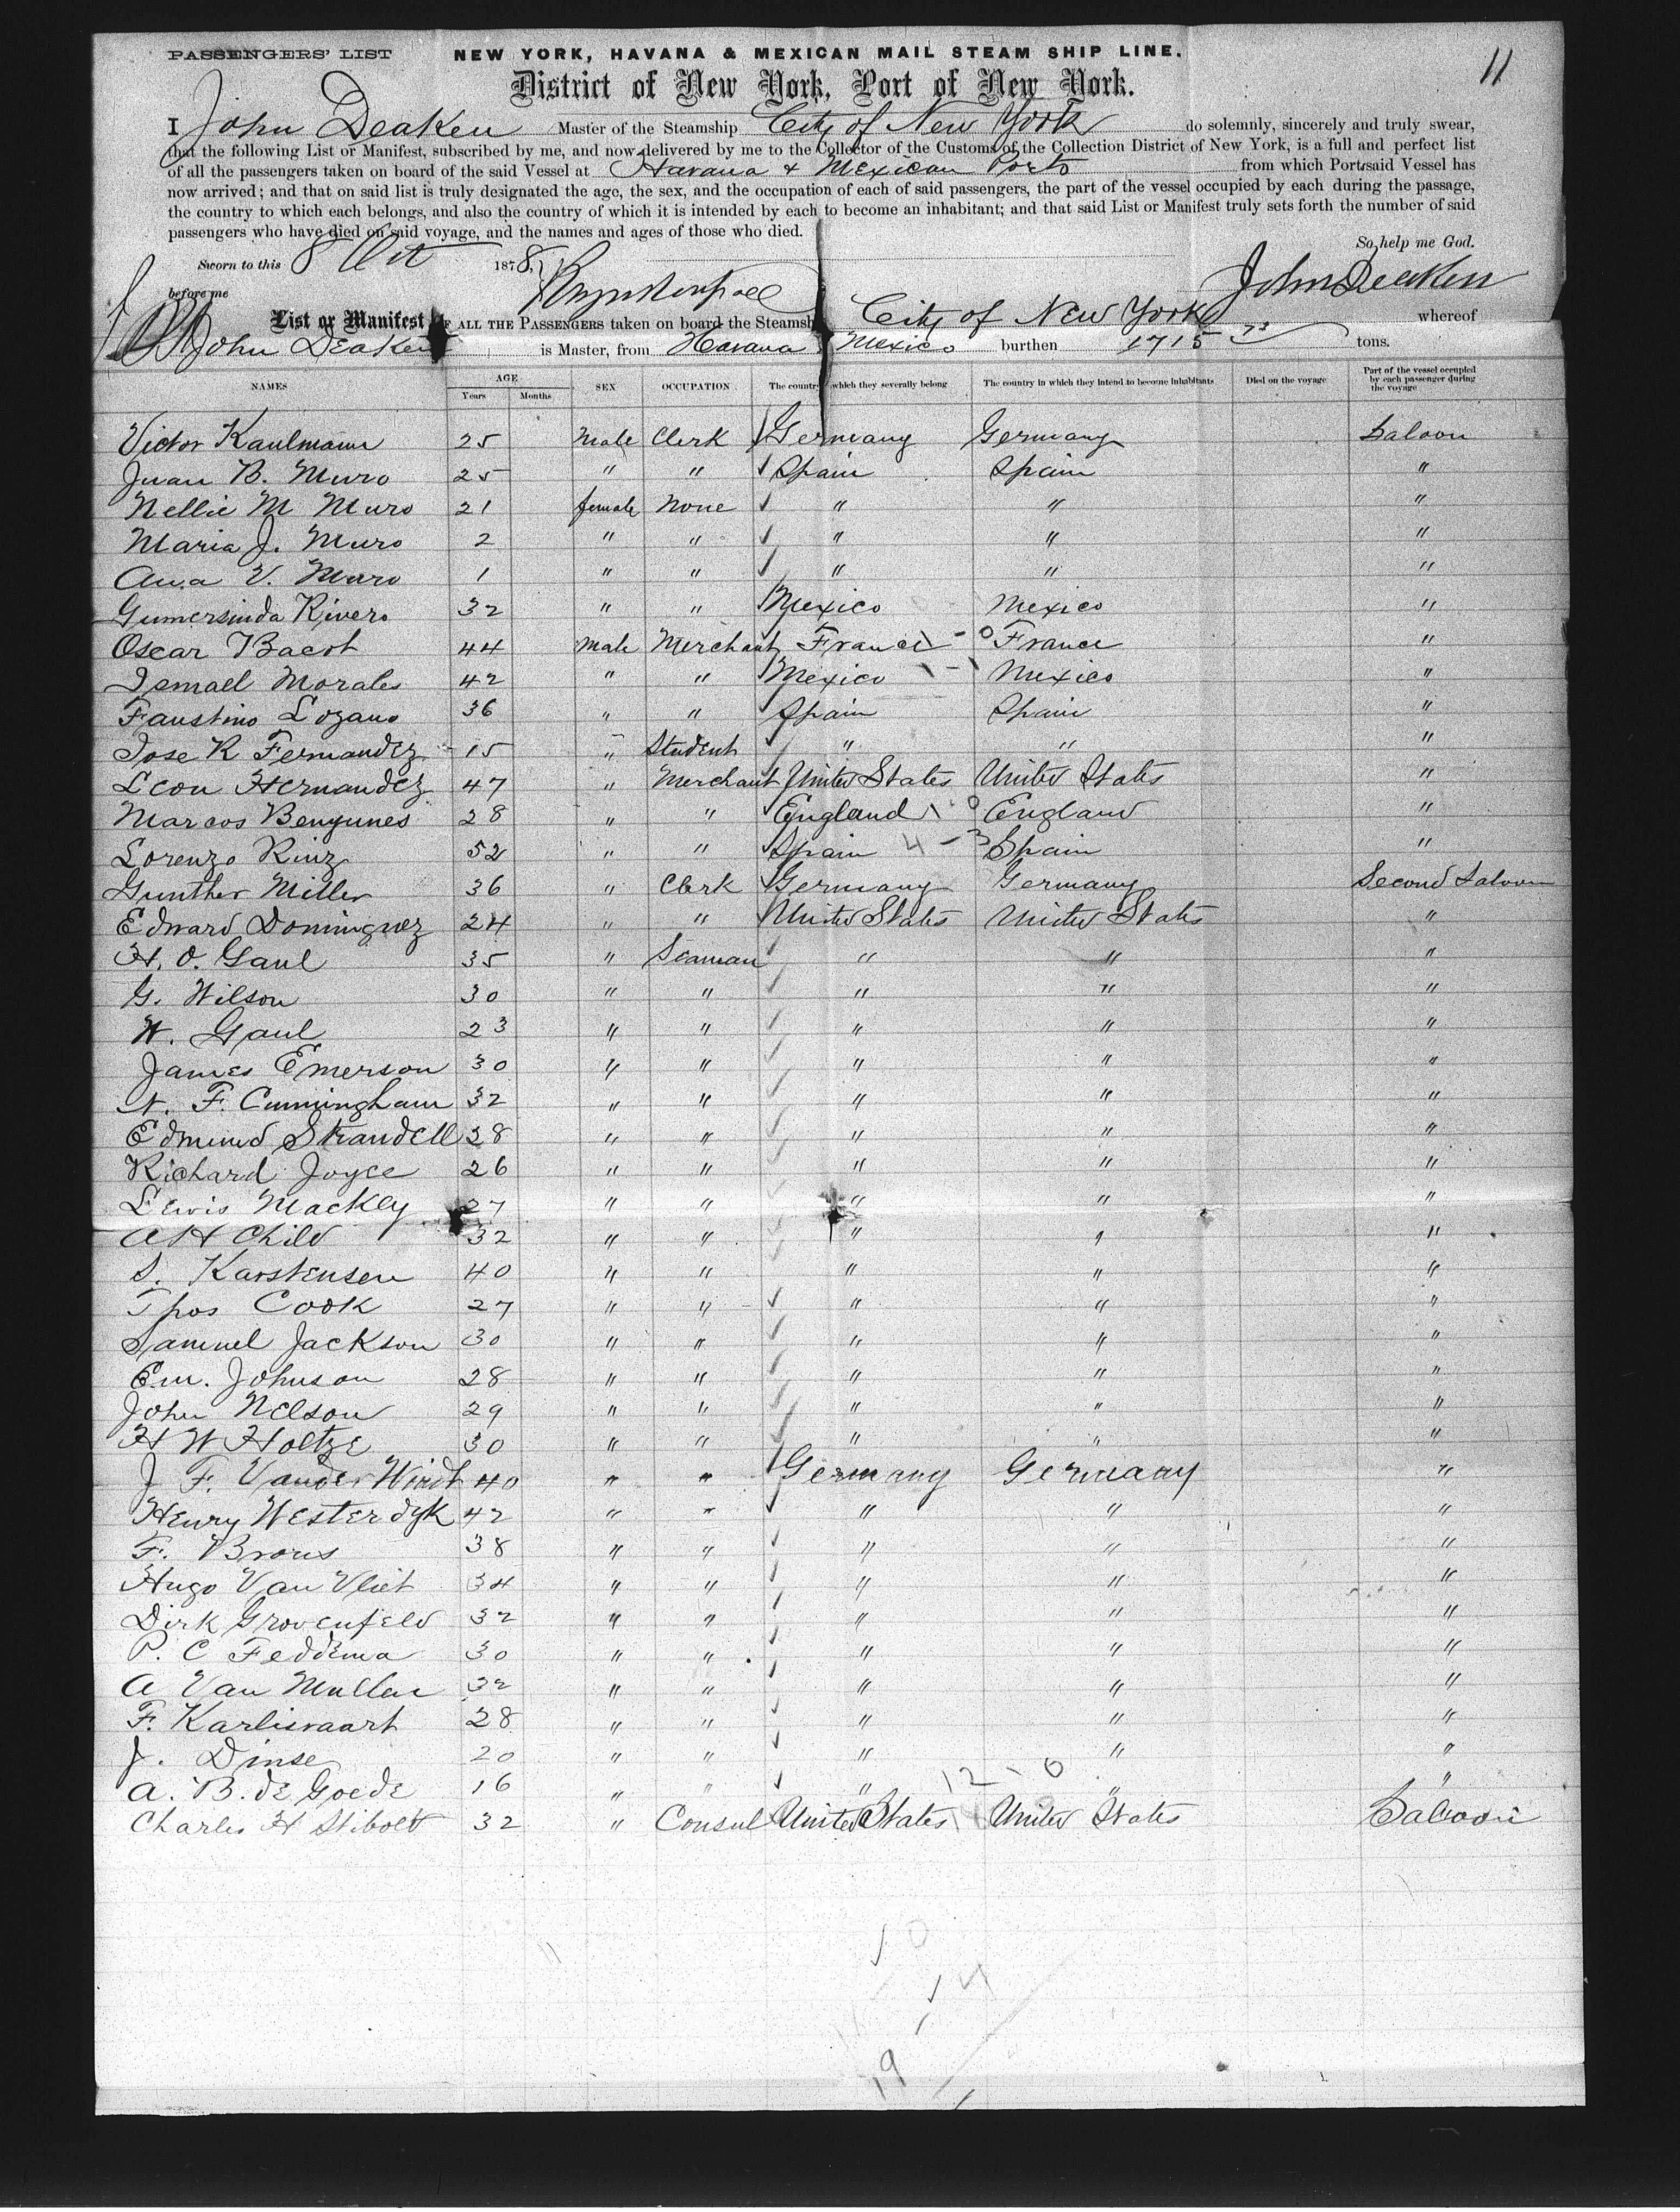 PASSENGERS' LIST NEW YORK, HAVANA & MEXICAN MAIL STEAM SHIP LINE. 11
District of New York, Port of New York.
I John Deaken Master of the Steamship City of New York do solemnly, sincerely and truly swear,
that the following List or Manifest, subscribed by me, and now delivered by me to the Collector of the Customs of the Collection District of New York, is a full and perfect list
of all the passengers taken on board of the said Vessel at Havana & Mexican Ports from which Port said Vessel has
now arrived; and that on said list is truly designated the age, the sex, and the occupation of each of said passengers, the part of the vessel occupied by each during the passage,
the country to which each belongs, and also the country of which it is intended by each to become an inhabitant; and that said List or Manifest truly sets forth the number of said
passengers who have died on said voyage, and the names and ages of those who died.
So help me God.
Sworn to this 8 Oct 1878,
before me John Deaken
List or Manifest OF ALL THE PASSENGERS taken on board the Steamship City of New York whereof
John Deaken is Master, from Havana Mexico burthen 1715 tons.
NAMES AGE Years Months SEX OCCUPATION The country which they severally belong The country in which they intend to become inhabitants Died on the voyage Part of the vessel occupied by each passenger during the voyage
Victor Kaulmann 25 Male Clerk Germany Germany Saloon
Juan B. Muro 25 " " Spain Spain "
Nellie M Muro 21 female None " " "
Maria J. Muro 2 " " " " "
Ana V. Muro 1 " " " " "
Gumersinda Rivero 32 " " Mexico Mexico "
Oscar Bacot 44 Male Merchant France 1 - 0 France "
Ismael Morales 42 " " Mexico 1 - 1 Mexico "
Faustino Lozano 36 " " Spain Spain "
Jose R Fernandez 15 " Student " " "
Leon Hernandez 47 " Merchant United States United States "
Marcos Benyunes 28 " " England 1 0 England "
Lorenzo Ruiz 52 " " Spain 4 - 3 Spain "
Gunther Miller 36 " Clerk Germany Germany Second Saloon
Edward Dominguez 24 " " United States United States "
H. O. Gaul 35 " Seaman " " "
G. Wilson 30 " " " " "
W. Gaul 23 " " " " "
James Emerson 30 " " " " "
N. F. Cunningham 32 " " " " "
Edmund Strandell 28 " " " " "
Richard Joyce 26 " " " " "
Lewis Mackey 27 " " " " "
A H Child 32 " " " " "
S. Karstensen 40 " " " " "
Thos Cook 27 " " " " "
Samuel Jackson 30 " " " " "
Em. Johnson 28 " " " " "
John Nelson 29 " " " " "
H W Holtze 30 " " " " "
J F. Vander Windt 40 " " Germany Germany "
Henry Westerdyk 42 " " " " "
F. Brons 38 " " " " "
Hugo Van Vliet 34 " " " " "
Dirk Grovenfeld 32 " " " " "
P. C Feddema 30 " " " " "
A Van Mullen 32 " " " " "
F. Karlisvaart 28 " " " " "
J. Dinse 20 " " " " "
A. B. de Goede 16 " " " 12 - 0 " "
Charles H Stibolt 32 " Consul United States United States Saloon
10
14
19